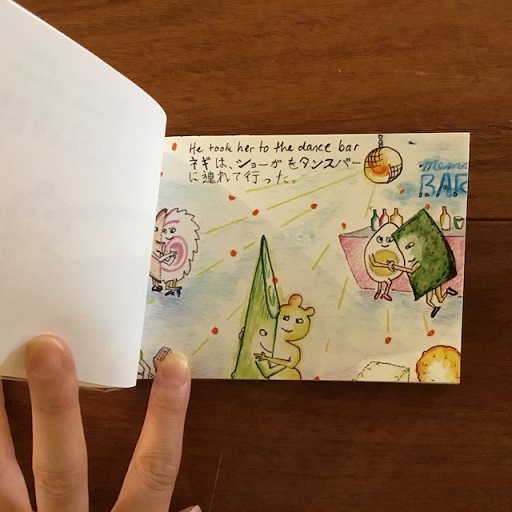 He took her to the dance bar
ネギは、ショーガをダンスバー
に連れて行った。
BAR